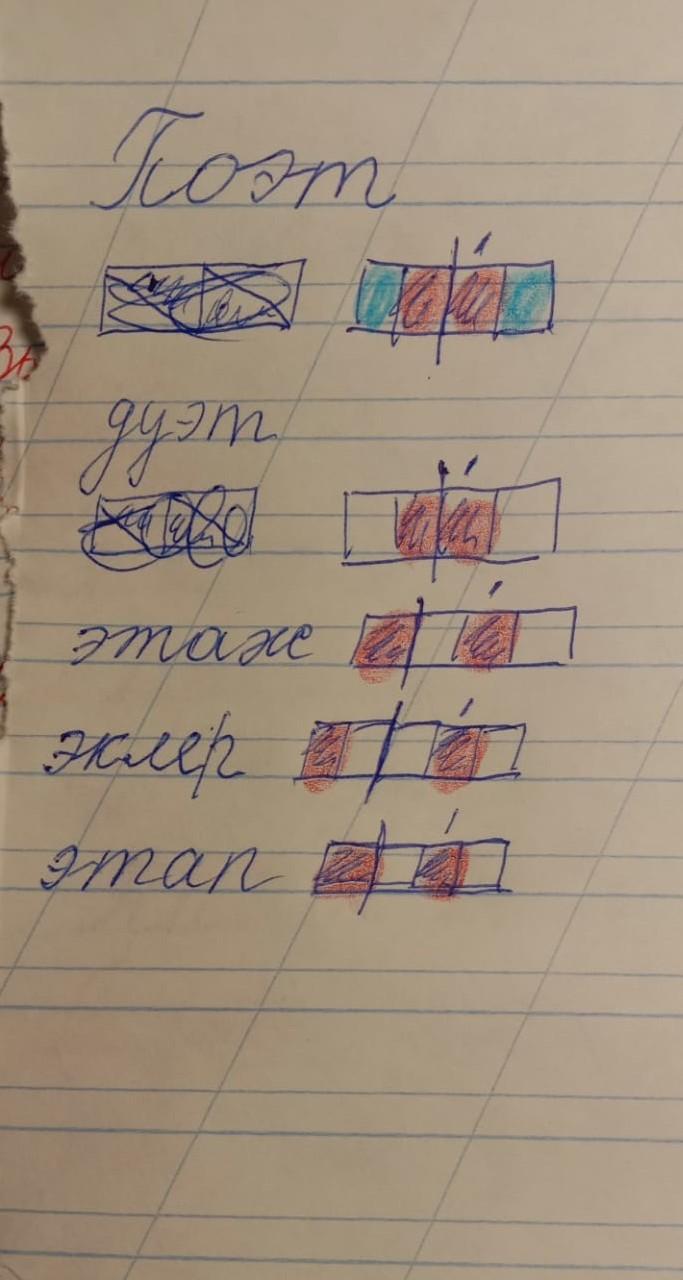 Поэт
дуэт
этаж
эклер
этап